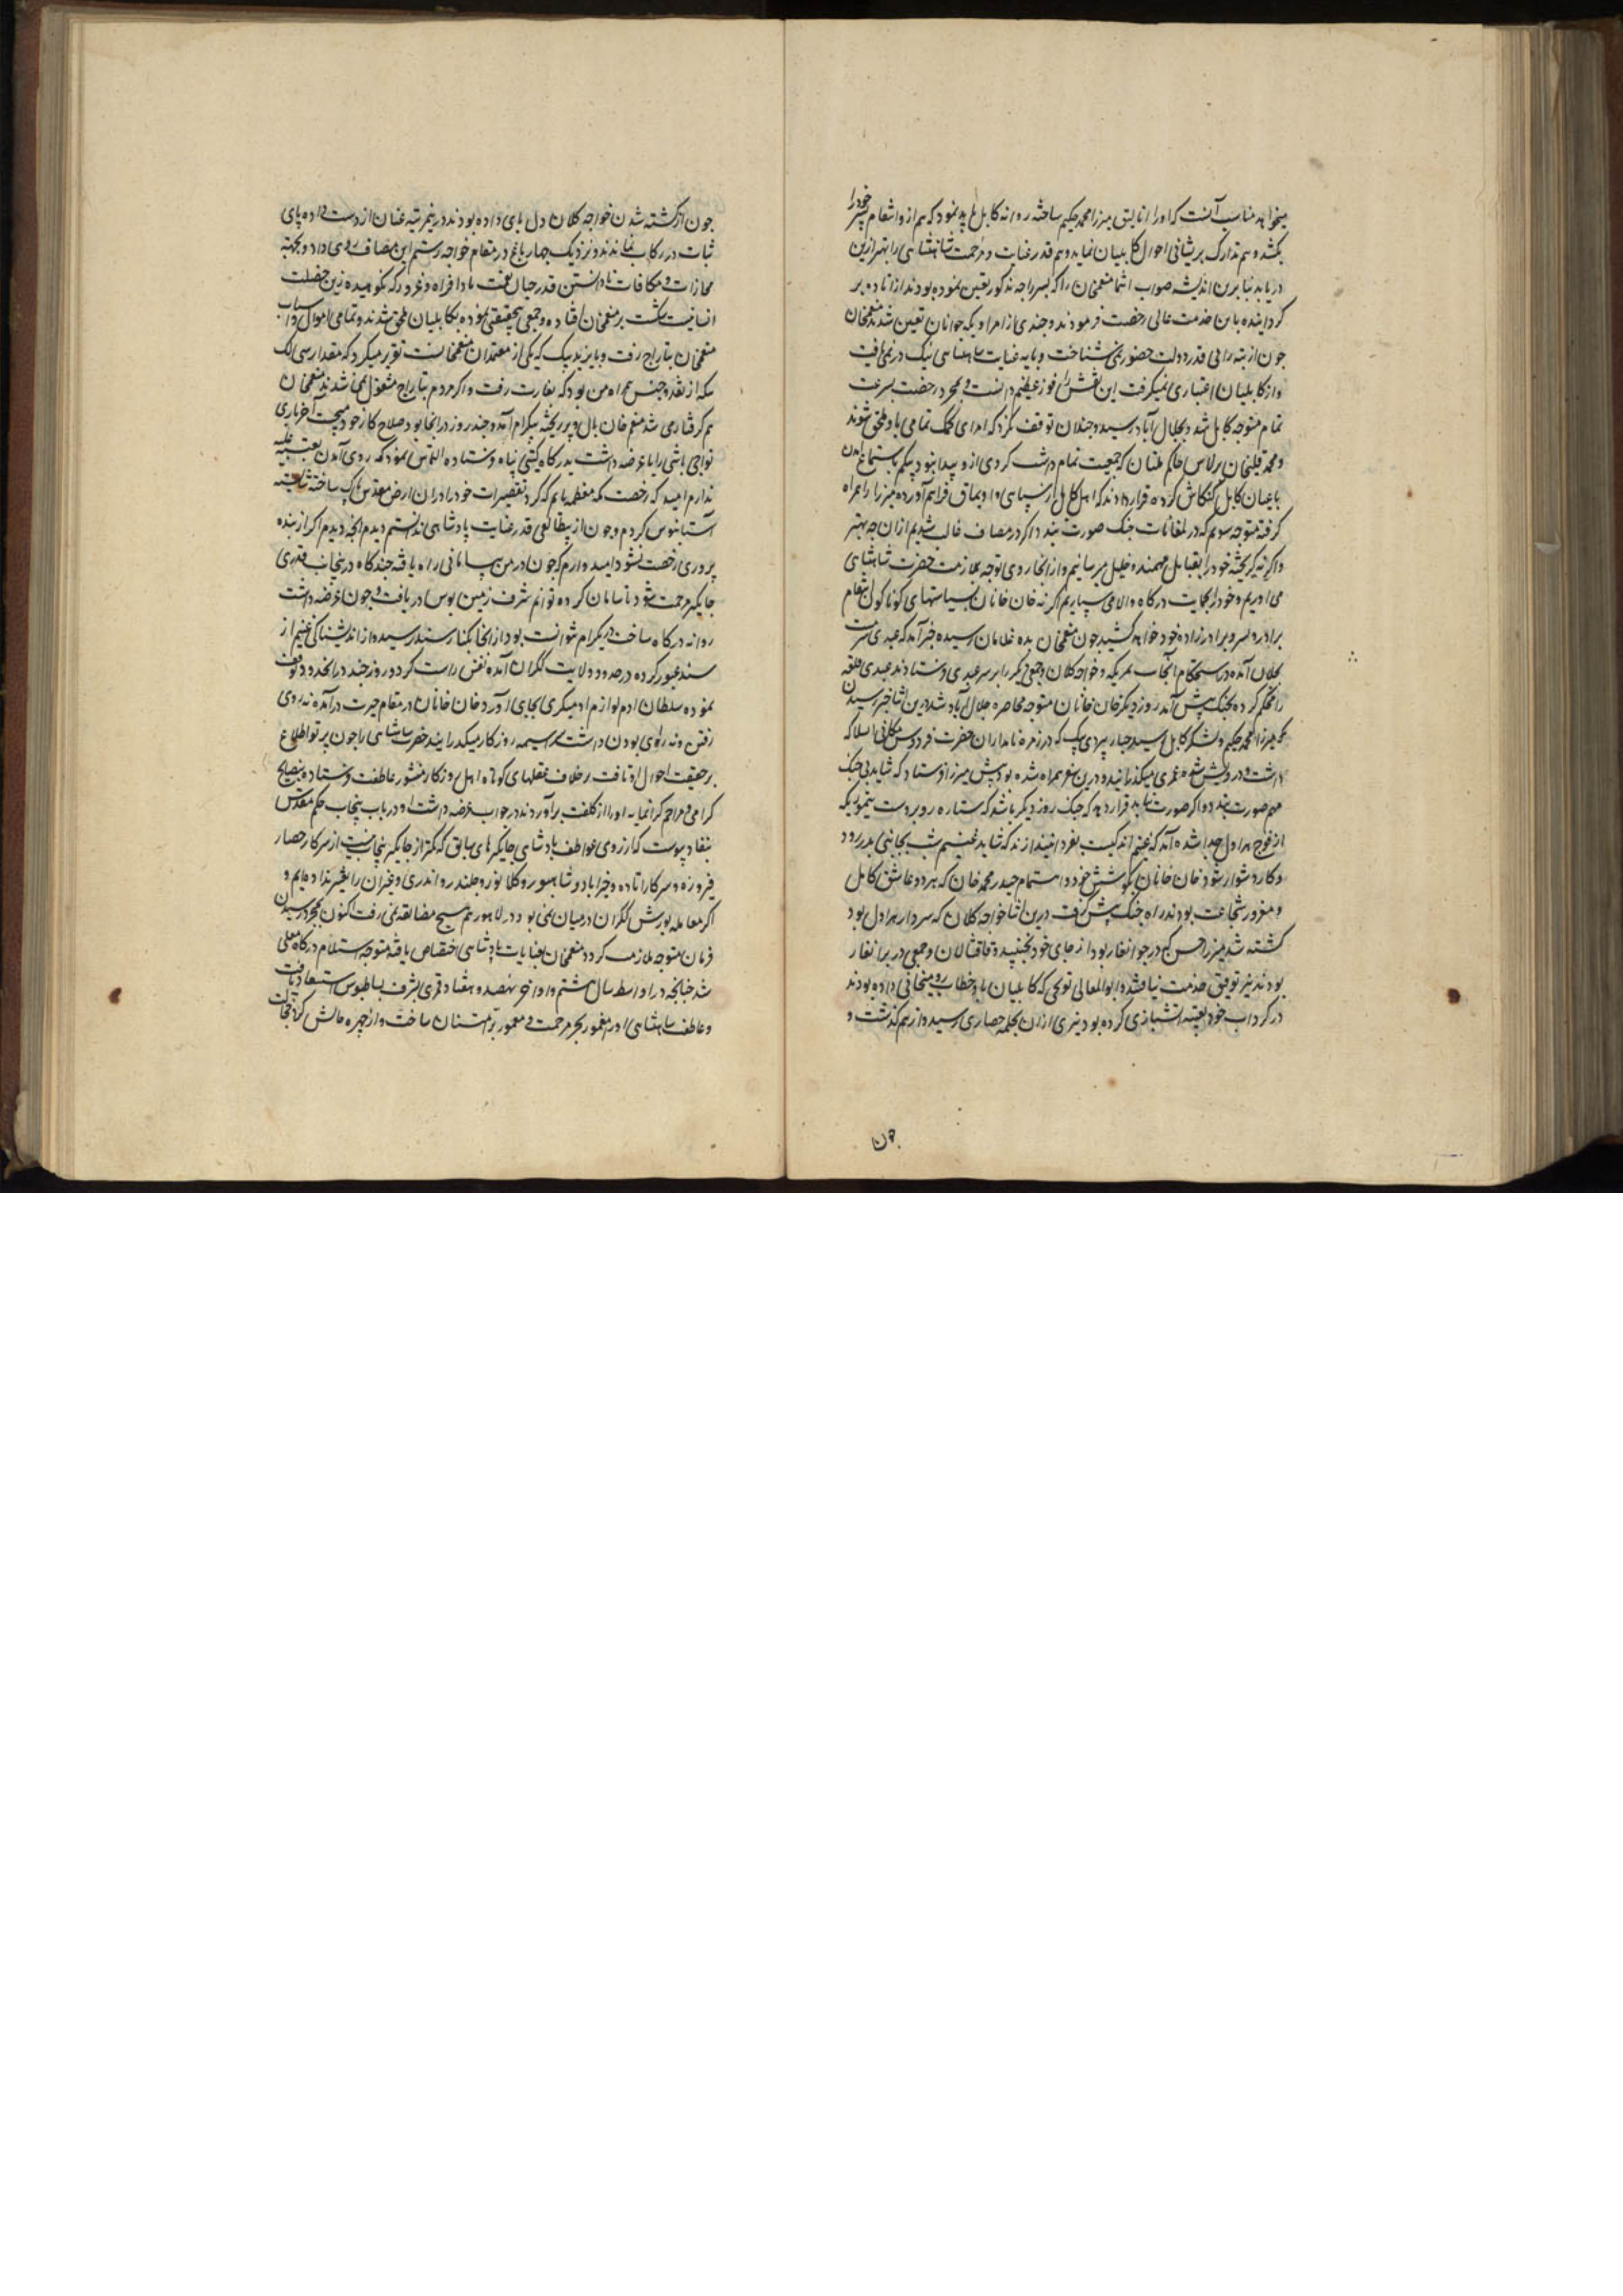 میخواهد مناسب آنست که او را اتالیق میرزا محمد حکیم ساخته روانه کابل باید نمود که هم از و انتقام پسر خود را
بکشد و هم تدارک پریشانی احوال کابلیان نماید و هم قدر عنایات و مرحمت شاهنشاهی را بهتر ازین
دریابد بنا برین اندیشه صواب انتما منعمخان را که بسر راجه مذکور تعین نموده بودند از اتاده بر
گردانیده باین خدمت عالی رخصت فرمودند و چندی از امرا و یکه جوانان تعین شدند منعمخان
چون از بته رائی قدر دولت حضور نمی شناخت و پایه عنایت شاهنشاهی نیک در نمی یافت
و از کابلیان اعتباری نمیگرفت این نقش را فوز عظیم دانست و بمجرد رخصت بسرعت
تمام متوجه کابل شد و بجلال آباد رسید و چندان توقف نکرد که امرای کمک تمامی باو ملحق شوند
و محمد قلیخان برلاس حاکم ملتان که جمعیت تمام داشت گردی ازو پیدا نبود بیکم باستماع آمدن
با عیان کابل کنکاش کرده قرار دادند که اهل کابل از سپاهی و اویماق فراهم آورده میرزا را همراه
گرفته متوجه سویم که در لمغانات جنک صورت بندد اگر در مصاف غالب شدیم ازان چه بهتر
و اگر نه گریخته خود را بقبایل مهمند و خلیل میرسانیم و از آنجا روی توجه بملازمت حضرت شاهنشاهی
می آوریم و خود را بحمایت درگاه والا می سپاریم اگر نه خان خانان بسیاستهای گوناگون انتقام
برادر و پسر و برادرزاده خود خواهد کشید چون منعمخان بده غلامان رسیده خبر آمد که عیدی سرمست
بجلال آمده در استحکام آنجاست تمر یکه و خواجه کلان و جمعی دیگر را بر سر عیدی فرستادند عیدی قلعه
را محکم کرده بجنک پیش آمد روز دیگر خان خانان متوجه محاصره جلال آباد شد درین اثنا خبر رسیدن
محمد میرزا حکیم و لشکر کابل رسید جبار بردی بیک که در زمره نامداران حضرت فردوس مکانی انسلاک
داشت و درویش شده عمری میگذرانید و درین سفر همراه شده بود پیش میرزا فرستاد که شاید بی جنک
مهم صورت بندد و اگر صورت نیابد قرار دهد که جنک روز دیگر باشد که ستاره روبروست تیمور یکه
از فوج هراول جدا شده آمد که غنیم اندکیست بفردا نیندازند که شاید غنیم شب بجانبی بدر رود
و کار دشوار شود خان خانان بکوشش خود و اهتمام حیدر محمد خان که هر دو عاشق کابل
و مغرور شجاعت بودند راه جنک پیش گرفت درین اثنا خواجه کلان که سردار هراول بود
کشته شد میرزا حسن که در جوانغار بود از جای خود نجنبید و قاقشالان و جمعی در برانغار
بودند نیز توفیق خدمت نیافتند و ابوالمعالی توپچی که کابلیان باو خطاب رومیخانی داده بودند
در گرداب خود تعبیه آتشبازی کرده بود تیری ازان بحکیمه حصاری رسید و از هم گذشت و
چون
چون از کشته شدن خواجه کلان دل پای داده بودند درینمرتبه عنان از دست داده پای
ثبات در رکاب نماندند و نزدیک چهارباغ در مقام خواجه رستم این مصاف روی داد و بجهته
مجازات و مکافات نادانستن قدر چنان نعمت بادافراه و غرور که نکوهیده ترین خصلت
انسانیت شکست بر منعمخان افتاده و جمعی بیحقیقتی نموده بکابلیان ملحق شدند و تمامی اموال و اسباب
منعمخان بتاراج رفت و بایزید بیک که یکی از معتمدان منعمخانست تقریر میکرد که مقدار سی لک
سکه از نقد و جنس همراه من بود که بغارت رفت و اگر مردم بتاراج مشغول نمی شدند منعمخان
هم گرفتار می شد منعم خان بال و پر ریخته ببگرام آمد و چند روز در انجا بود صلاح کار خود میجست آخر یاری
تواجی باشی را با عرضه داشت بدرگاه گیتی پناه فرستاده التماس نمود که روی آمدن بعتبه علیه
ندارم امید که رخصت مکه معظمه یابم که گرد تقصیرات خود را دران ارض مقدس پاک ساخته شایسته
آستانبوس گردم و چون از بیطالعی قدر عنایت پادشاهی ندانستم دیدم آنچه دیدم اگر از بنده
پروری رخصت نشود امیدوارم که چون در من بیسامانی راه یافته چندگاه در پنجاب قدری
جایگیر مرحمت شود تا سامان کرده توانم شرف زمین بوس دریافت و چون عرضه داشت
روانه درگاه ساخت در بگرام نتوانست بود از انجا بکنار سند رسید و از اندیشناکی غنیم از
سند عبور کرده در حدود ولایت گکران آمده نفس راست کرد و روز چند در آنحدود توقف
نموده سلطان ادم لوازم ادمیگری بجای آورد خان خانان در مقام حیرت درآمده نه روی
رفتن و نه رای بودن داشت سراسیمه روزگار میگذرانید حضرت شاهنشاهی را چون پرتو اطلاع
بر حقیقت احوال او تافت برخلاف عقلهای کوتاه اهل روزگار منشور عاطفت فرستاده بنصایح
گرامی و مراحم گرانمایه او را از کلفت برآوردند در جواب عرضه داشت او در باب پنجاب حکم مقدس
بنفاد پیوست که از روی عواطف پادشاهی جایگیرهای سابق که کمتر از جایگیر پنجاب نیست از سرکار حصار
فیروزه و سرکار اتاده و خیراباد و شاهپور و کلانور و جلندر و اندری و غیران را تغیر نداده ایم و
اگر معامله یورش گکران درمیان نمی بود در لاهور هم هیچ مضایقه نمی رفت اکنون بمجرد رسیدن
فرمان متوجه ملازمت گردد منعمخان بعنایات پادشاهی اختصاص یافته متوجه استلام درگاه معلی
شد چنانچه در اواسط سال هشتم و اواخر نهصد و هفتاد قمری بشرف بساطبوس استسعاد یافت
و عاطفت شاهنشاهی او را مغمور بحر مرحمت و معمور بر امتنان ساخت و از چهره حالش گرد خجالت